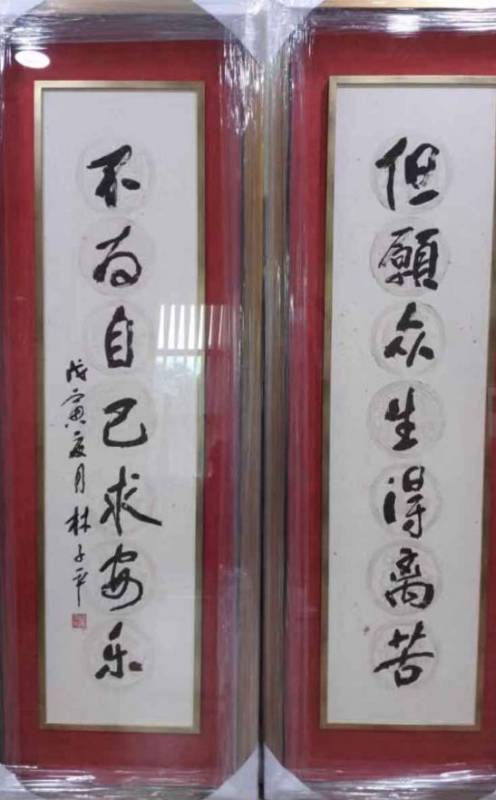 但願众生得离苦
不为自己求安乐
戊寅夏月 林子平